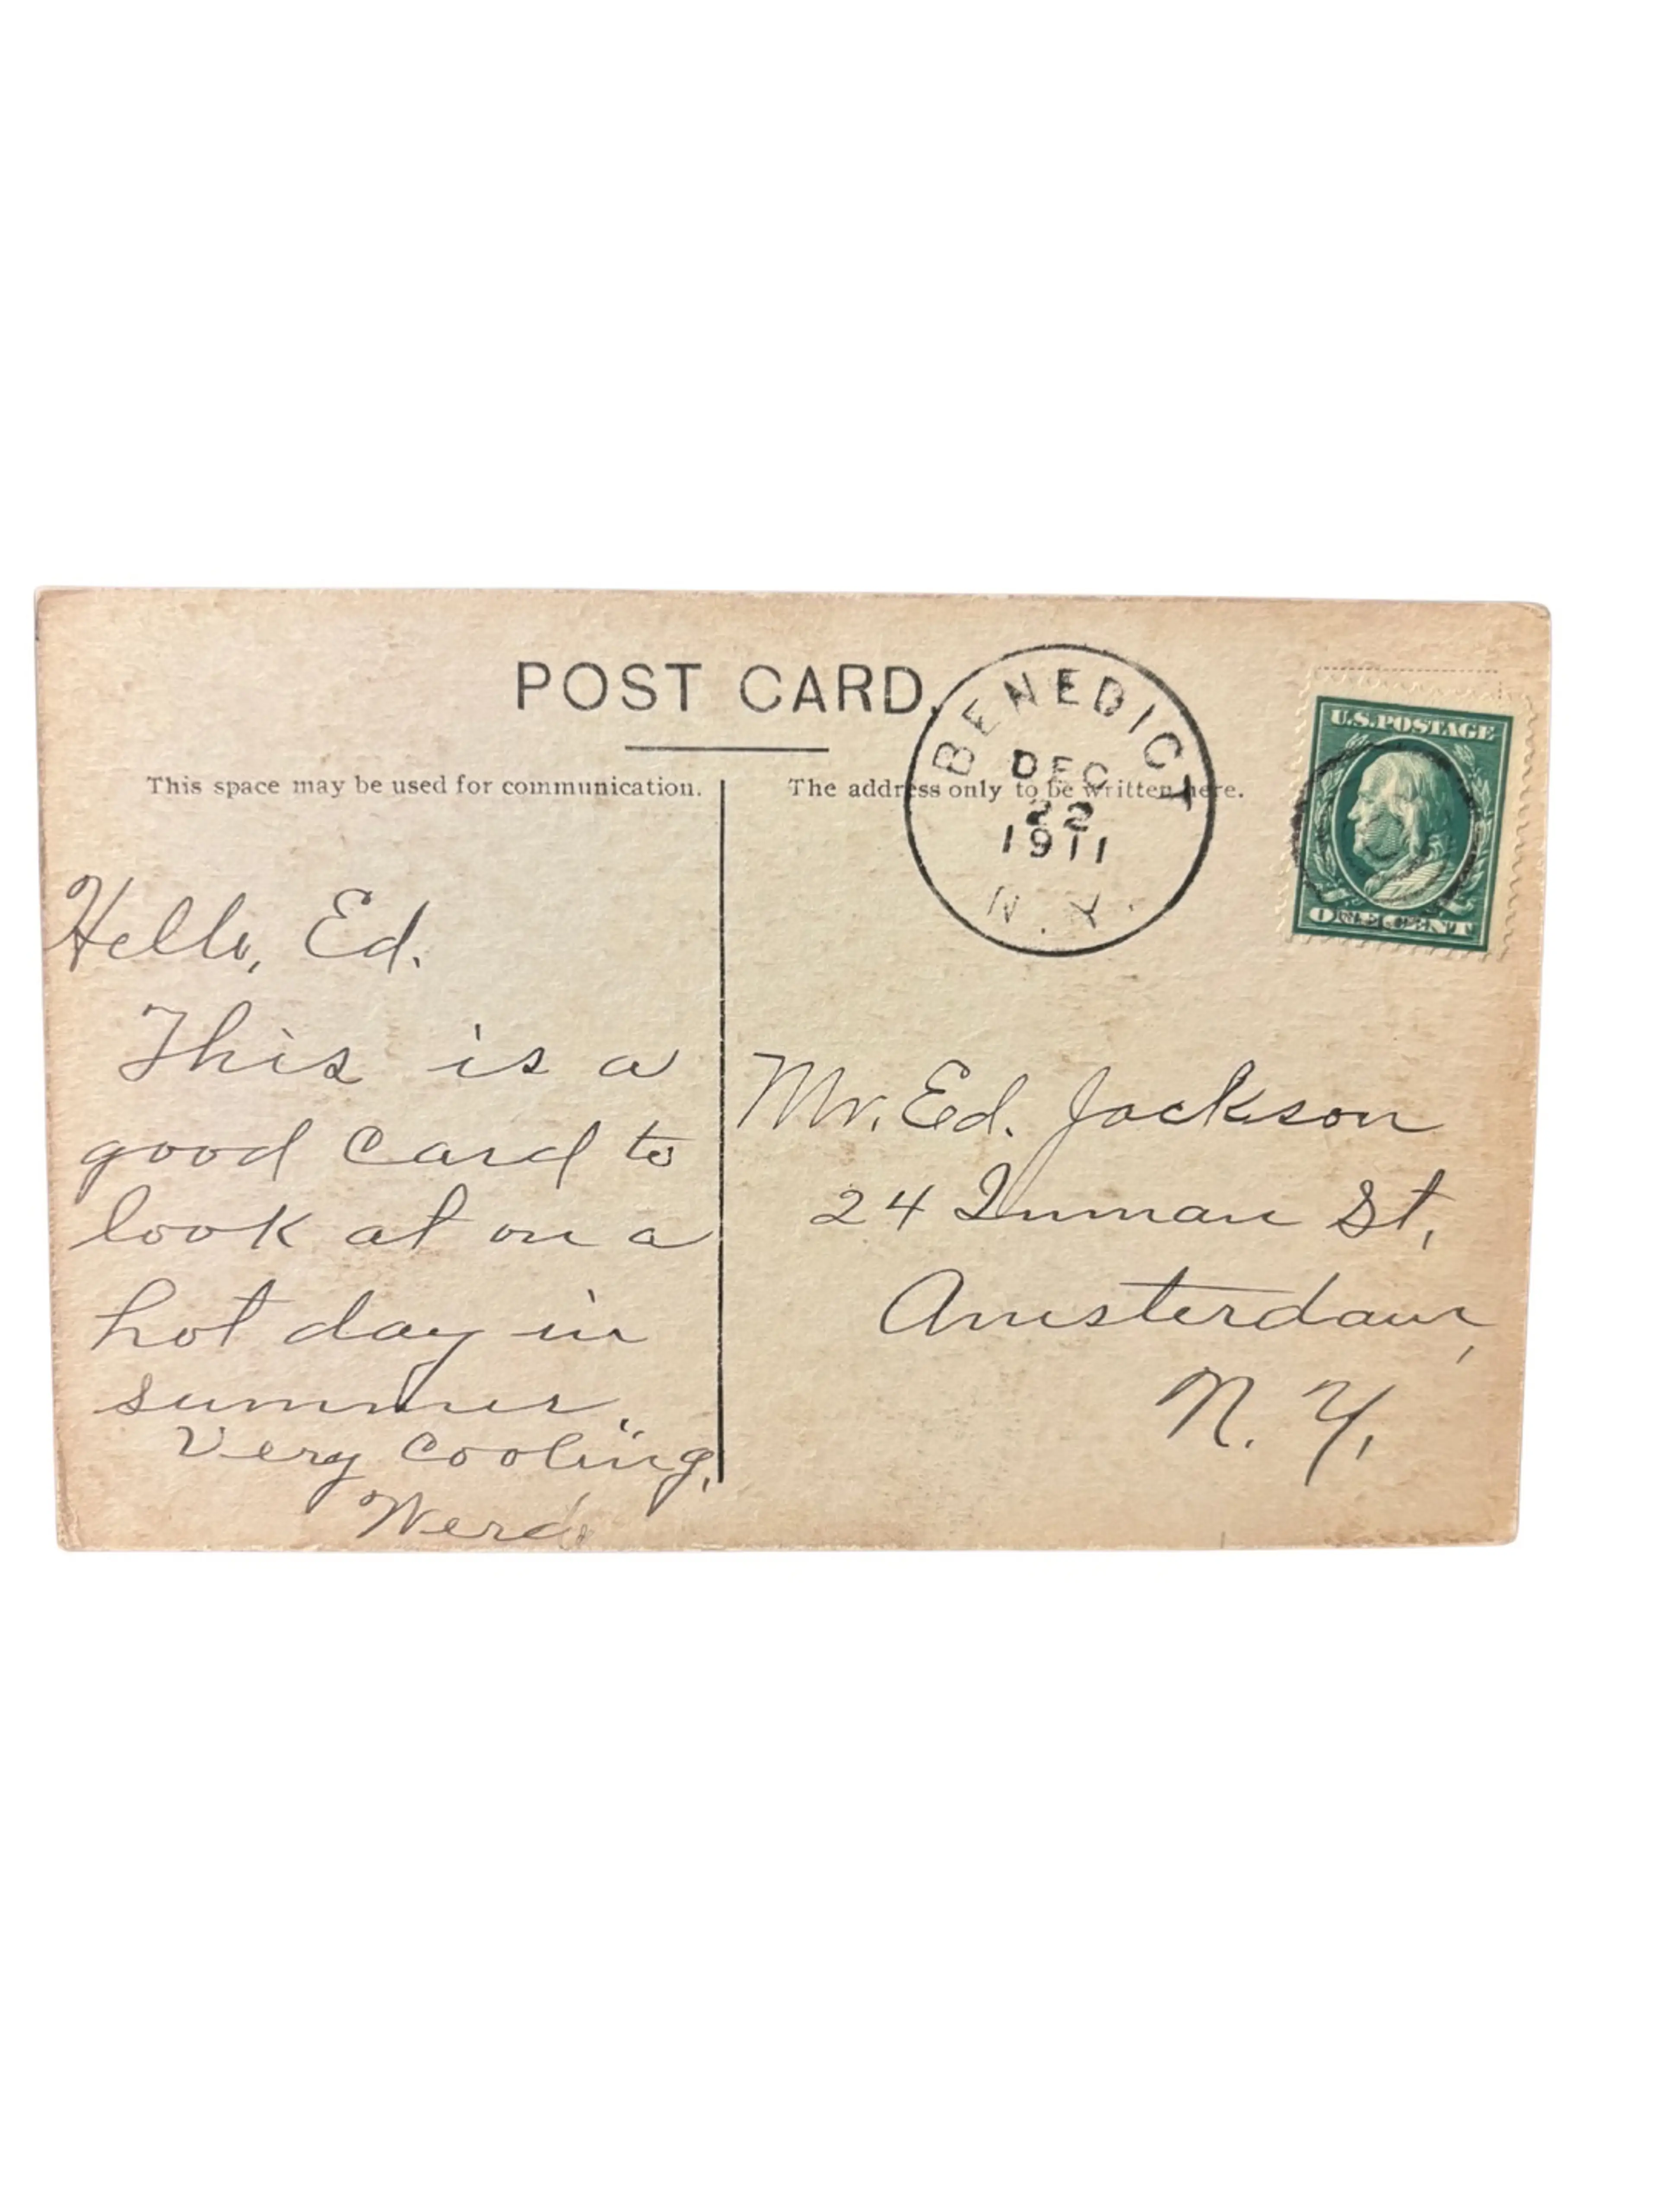 POST CARD.
BENEDICT
DEC
22
1911
N.Y.
U.S. POSTAGE
This space may be used for communication.
The address only to be written here.
Hello, Ed.
This is a
good card to
look at on a
hot day in
summer.
Very cooling,
Mr. Ed. Jackson
24 Inman St,
Amsterdam,
N. Y,